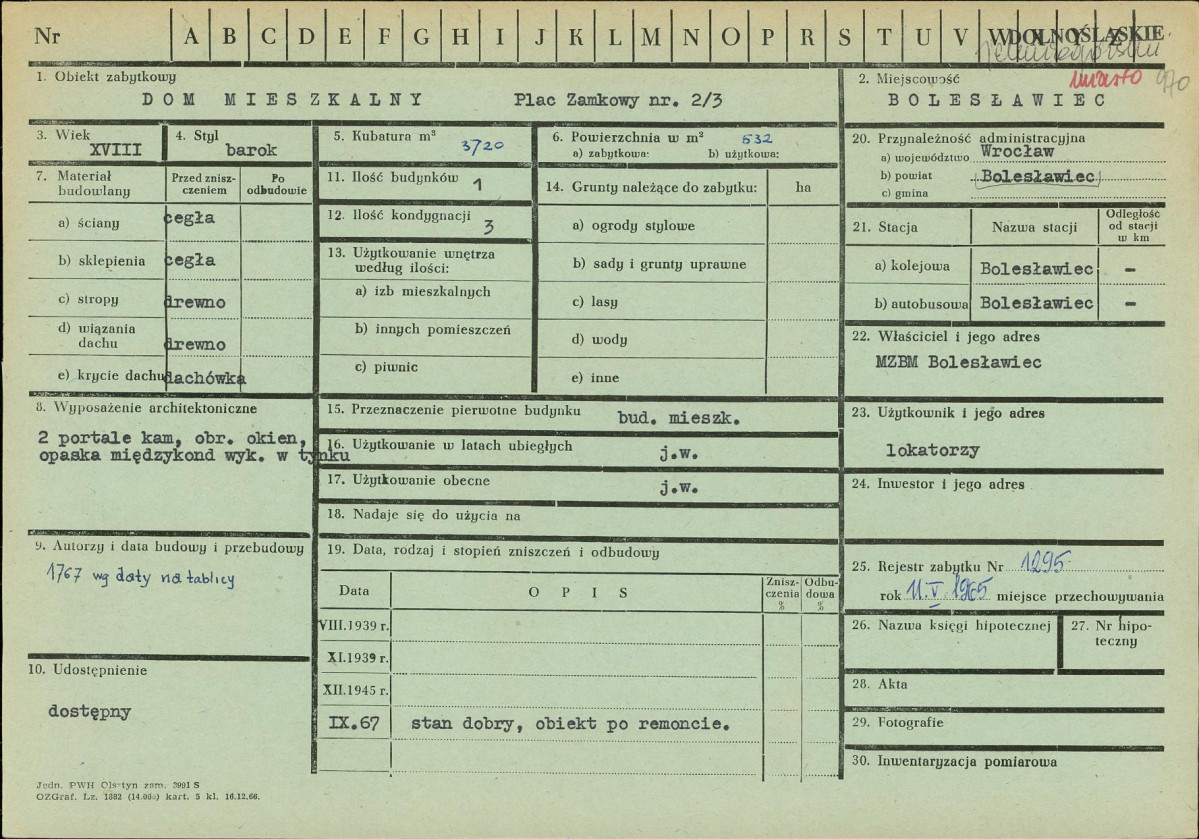 Nr A B C D E F G H I J K L M N O P R S T U V W DOLNOŚLĄSKIE
1. Obiekt zabytkowy
DOM MIESZKALNY Plac Zamkowy nr. 2/3
2. Miejscowość miasto 970
BOLESŁAWIEC
3. Wiek
XVIII
4. Styl
barok
5. Kubatura m³
3720
6. Powierzchnia w m² 532
a) zabytkowa: b) użytkowa:
7. Materiał budowlany
Przed zniszczeniem
Po odbudowie
a) ściany cegła
b) sklepienia cegła
c) stropy drewno
d) wiązania dachu drewno
e) krycie dachu dachówka
11. Ilość budynków 1
12. Ilość kondygnacji 3
13. Użytkowanie wnętrza
według ilości:
a) izb mieszkalnych
b) innych pomieszczeń
c) piwnic
14. Grunty należące do zabytku: ha
a) ogrody stylowe
b) sady i grunty uprawne
c) lasy
d) wody
e) inne
8. Wyposażenie architektoniczne
2 portale kam, obr. okien,
opaska międzykond wyk. w tynku
9. Autorzy i data budowy i przebudowy
1767 wg daty na tablicy
10. Udostępnienie
dostępny
15. Przeznaczenie pierwotne budynku bud. mieszk.
16. Użytkowanie w latach ubiegłych j.w.
17. Użytkowanie obecne j.w.
18. Nadaje się do użycia na
19. Data, rodzaj i stopień zniszczeń i odbudowy
Data OPIS Zniszczenia % Odbudowa %
VIII.1939 r.
XI.1939 r.
XII.1945 r.
IX.67 stan dobry, obiekt po remoncie.
20. Przynależność administracyjna
a) województwo Wrocław
b) powiat Bolesławiec
c) gmina
21. Stacja Nazwa stacji Odległość od stacji w km
a) kolejowa Bolesławiec -
b) autobusowa Bolesławiec -
22. Właściciel i jego adres
MZBM Bolesławiec
23. Użytkownik i jego adres
lokatorzy
24. Inwestor i jego adres
25. Rejestr zabytku Nr 1295
rok 11.V.1965 miejsce przechowywania
26. Nazwa księgi hipotecznej
27. Nr hipoteczny
28. Akta
29. Fotografie
30. Inwentaryzacja pomiarowa
Jedn. PWH Olsztyn zam. 3991 S
OZGraf. Lz. 1882 (14.000) kart. 5 kl. 16.12.66.